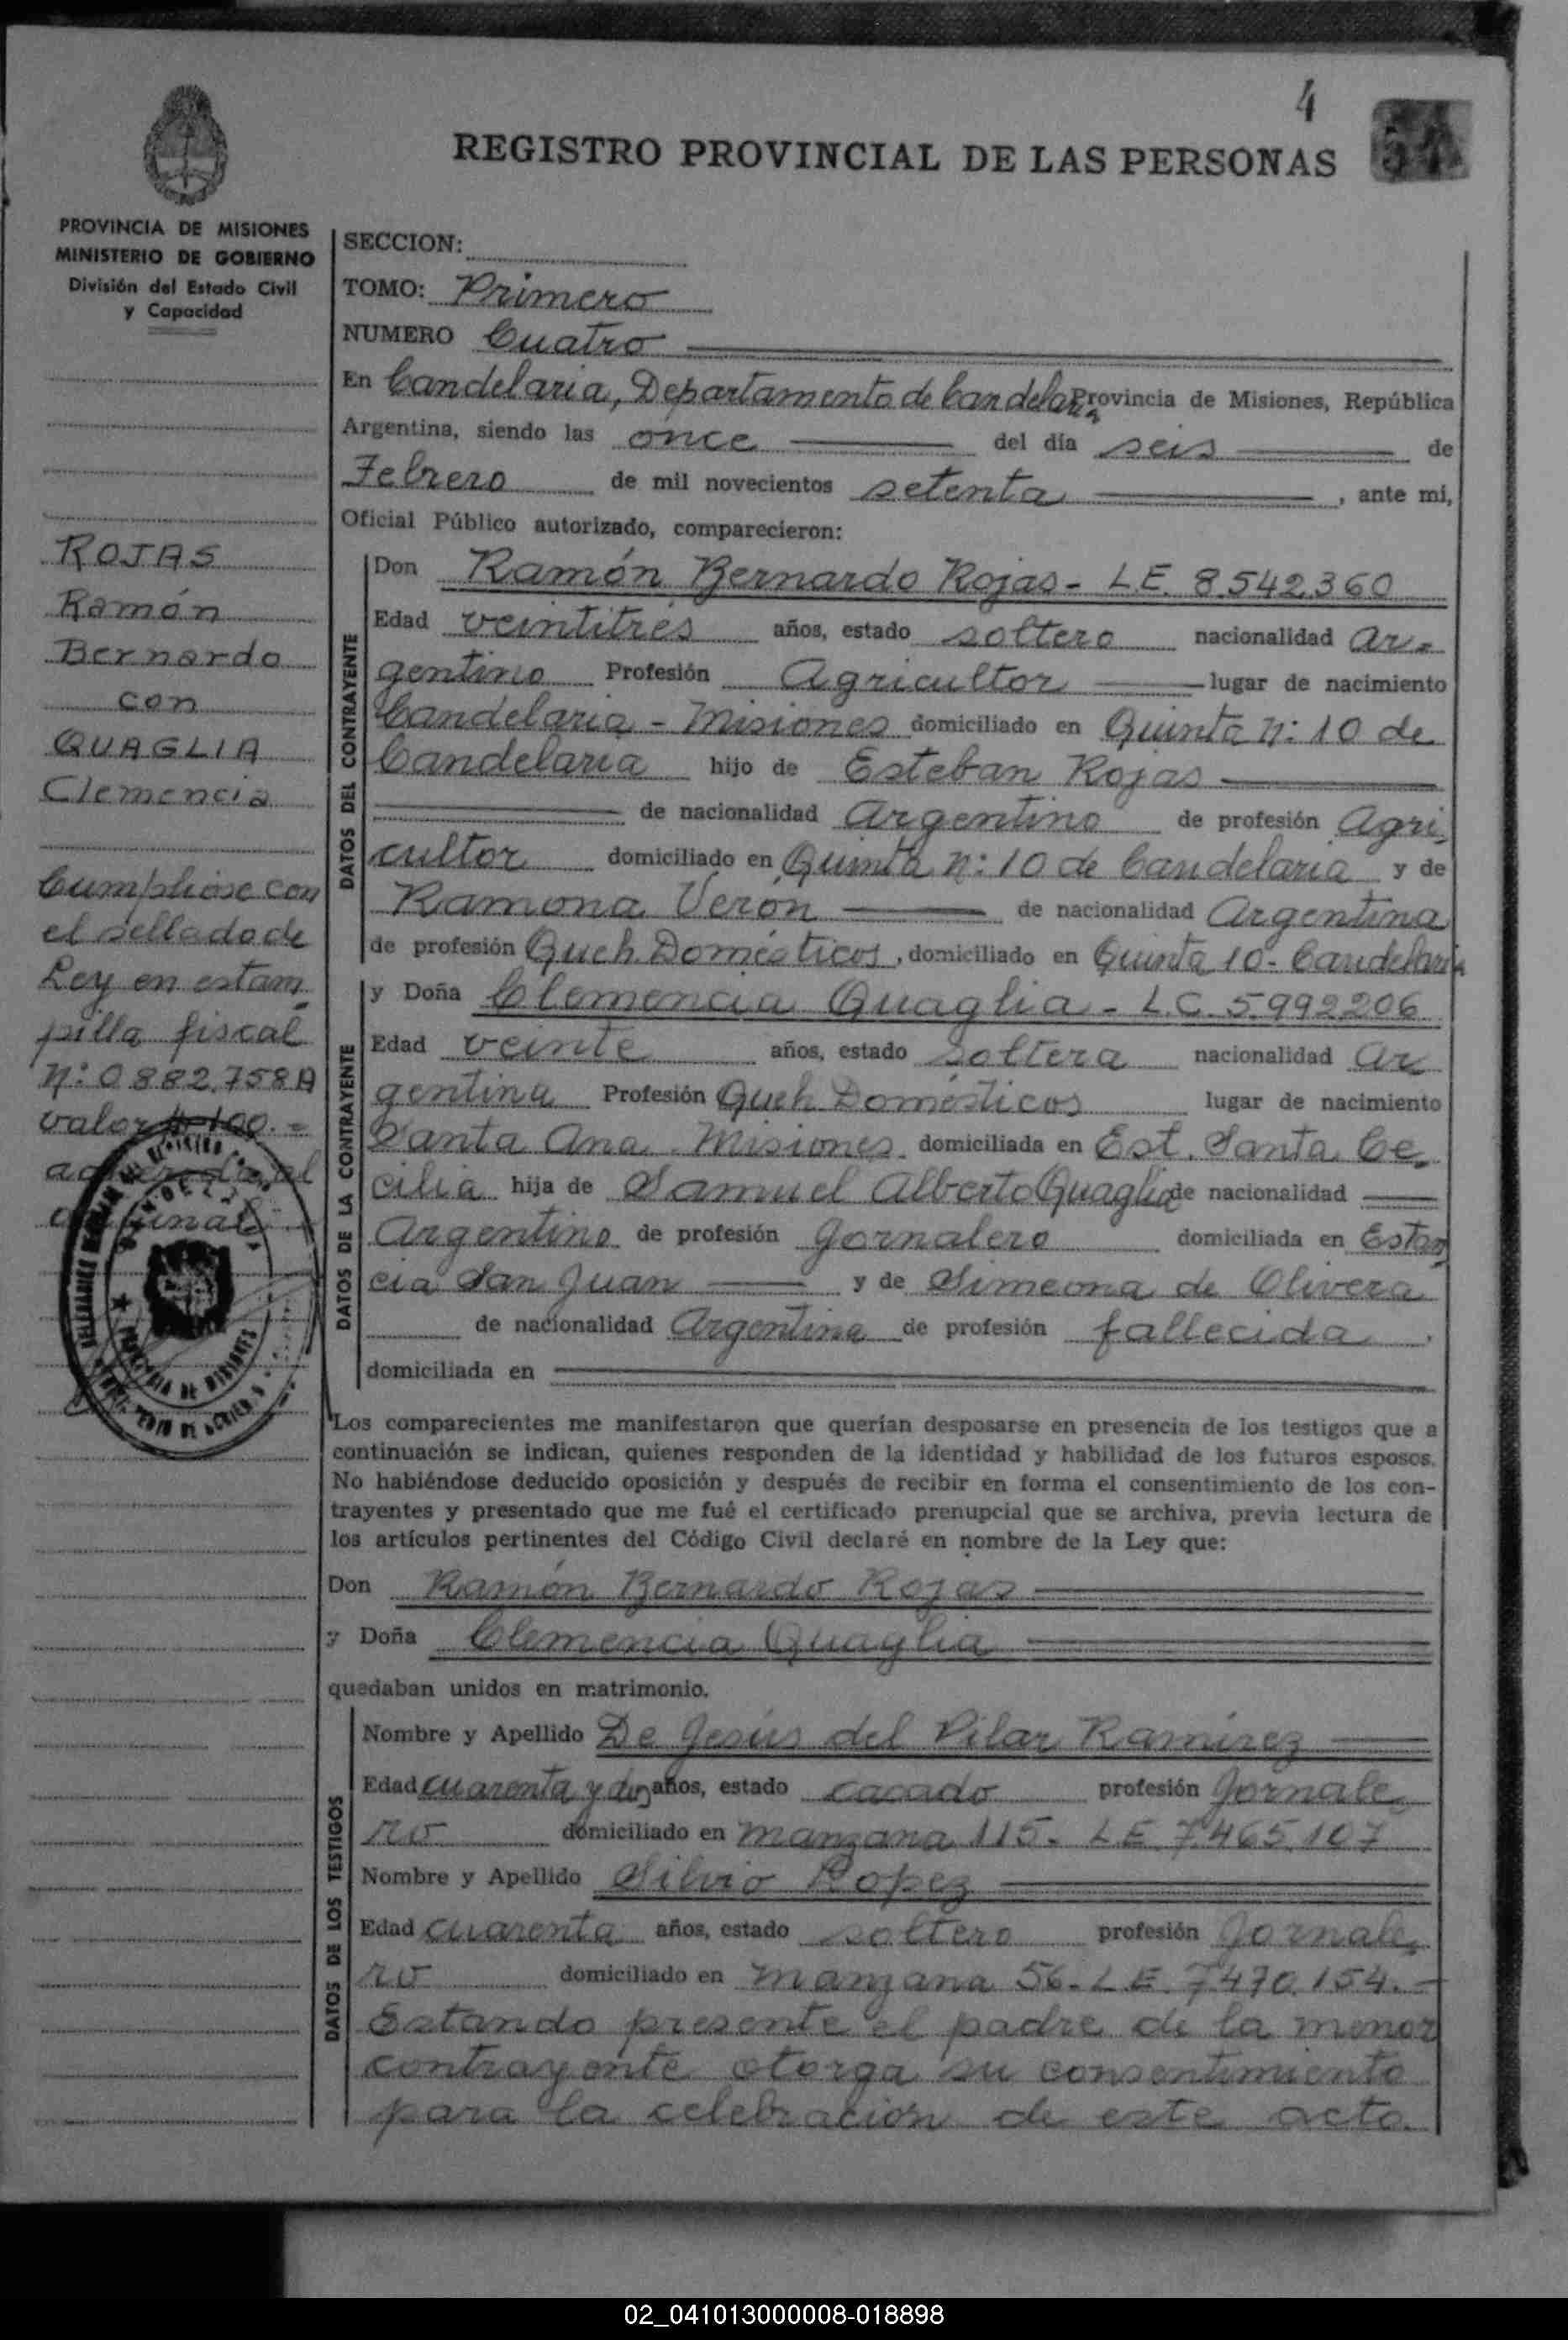 4
54
REGISTRO PROVINCIAL DE LAS PERSONAS
PROVINCIA DE MISIONES
MINISTERIO DE GOBIERNO
División del Estado Civil
y Capacidad
ROJAS
Ramón
Bernardo
con
QUAGLIA
Clemencia
Cumplióse con
el sellado de
Ley en estam
pilla fiscal
Nº: 0882.758A
valor $ 100.=
adherida al
original
SECCION:
TOMO: Primero
NUMERO Cuatro
En Candelaria, Departamento de Candelaria Provincia de Misiones, República
Argentina, siendo las once del día seis de
Febrero de mil novecientos setenta, ante mí,
Oficial Público autorizado, comparecieron:
DATOS DEL CONTRAYENTE
Don Ramón Bernardo Rojas - L.E. 8.542.360
Edad veintitrés años, estado soltero nacionalidad Ar-
gentino Profesión Agricultor lugar de nacimiento
Candelaria - Misiones domiciliado en Quinta n: 10 de
Candelaria hijo de Esteban Rojas
de nacionalidad Argentino de profesión Agri-
cultor domiciliado en Quinta n: 10 de Candelaria y de
Ramona Verón de nacionalidad Argentina
de profesión Queh. Domésticos, domiciliado en Quinta 10- Candelaria
DATOS DE LA CONTRAYENTE
y Doña Clemencia Quaglia - L.C. 5.992206
Edad veinte años, estado soltera nacionalidad Ar
gentina Profesión Queh. Domésticos lugar de nacimiento
Santa Ana. Misiones. domiciliada en Est. Santa Ce-
cilia hija de Samuel Alberto Quaglia de nacionalidad
Argentino de profesión Jornalero domiciliada en Estan
cia San Juan y de Simeona de Olivera
de nacionalidad Argentina de profesión fallecida.
domiciliada en
Los comparecientes me manifestaron que querían desposarse en presencia de los testigos que a
continuación se indican, quienes responden de la identidad y habilidad de los futuros esposos.
No habiéndose deducido oposición y después de recibir en forma el consentimiento de los con-
trayentes y presentado que me fué el certificado prenupcial que se archiva, previa lectura de
los artículos pertinentes del Código Civil declaré en nombre de la Ley que:
Don Ramón Bernardo Rojas
y Doña Clemencia Quaglia
quedaban unidos en matrimonio.
DATOS DE LOS TESTIGOS
Nombre y Apellido De Jesús del Pilar Ramírez
Edad cuarenta y dos años, estado casado profesión Jornale-
ro domiciliado en manzana 115. L.E. 7.465.107
Nombre y Apellido Silvio Lopez
Edad cuarenta años, estado soltero profesión Jornale-
ro domiciliado en manzana 56.- L.E. 7.470.154.-
Estando presente el padre de la menor
contrayente otorga su consentimiento
para la celebración de este acto.
02_041013000008-018898